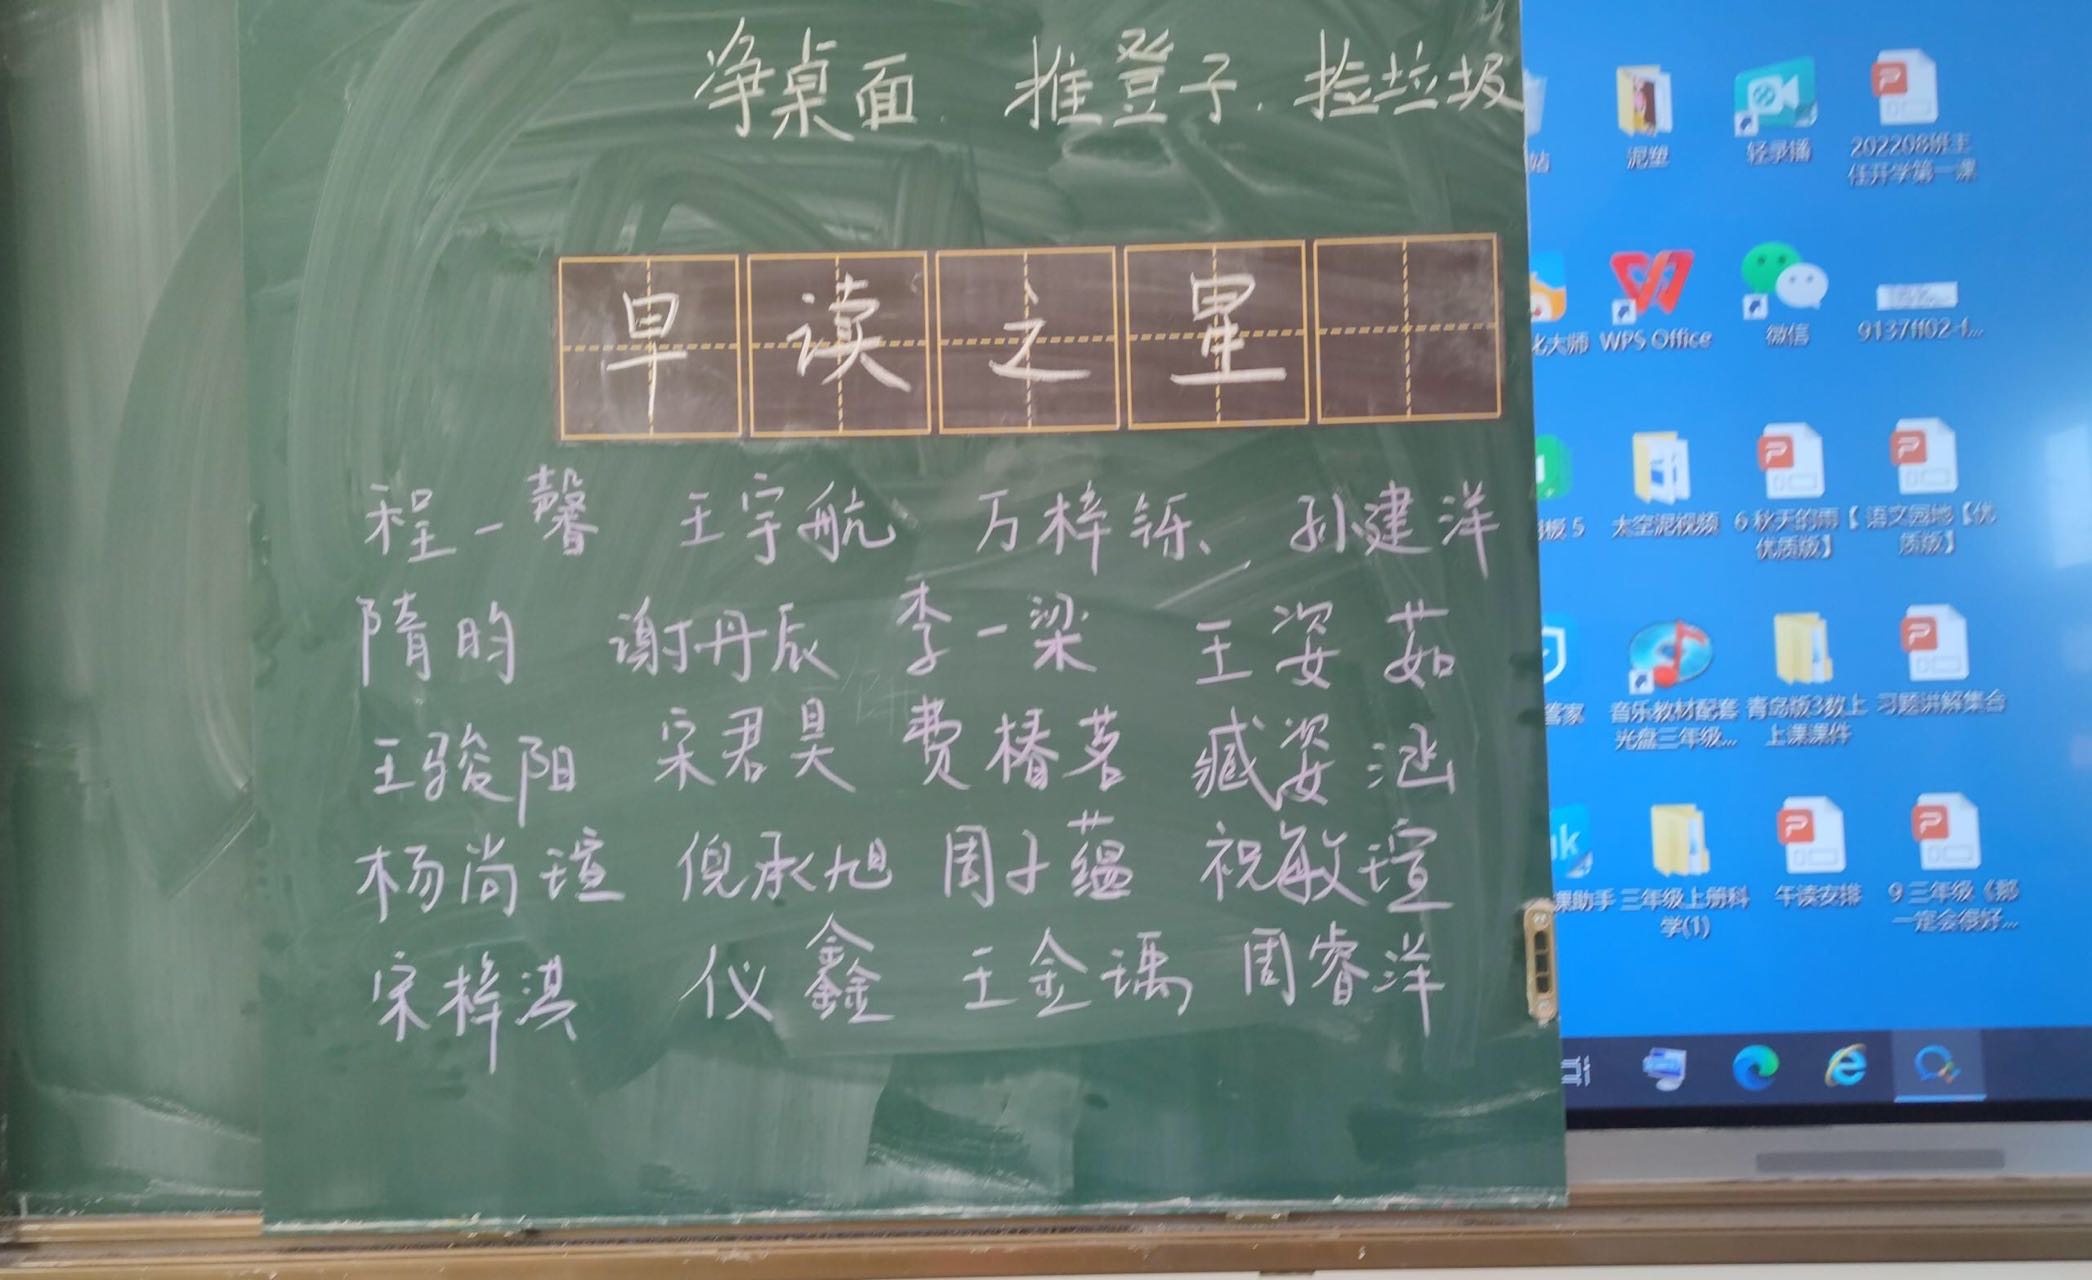 净桌面 推登子.捡垃圾
早读之星
程一馨 王宇航 万梓铄、 孙建洋
隋昀 谢丹辰 李一梁 王姿茹
王骏阳 宋君昊 费椿茗 臧姿涵
杨尚瑄 倪承旭 周子蕴 祝敏瑄
宋梓淇 仪鑫 王金瑀 周睿洋
站 泥塑 轻录播 202208班主
任开学第一课
化大师 WPS Office 微信 9137ff02-f...
板5 太空泥视频 6 秋天的雨【
优质版】 语文园地【优
质版】
管家 音乐教材配套
光盘三年级... 青岛版3数上
上课课件 习题讲解集合
课助手 三年级上册科
学(1) 午读安排 9 三年级《那
一定会很好...